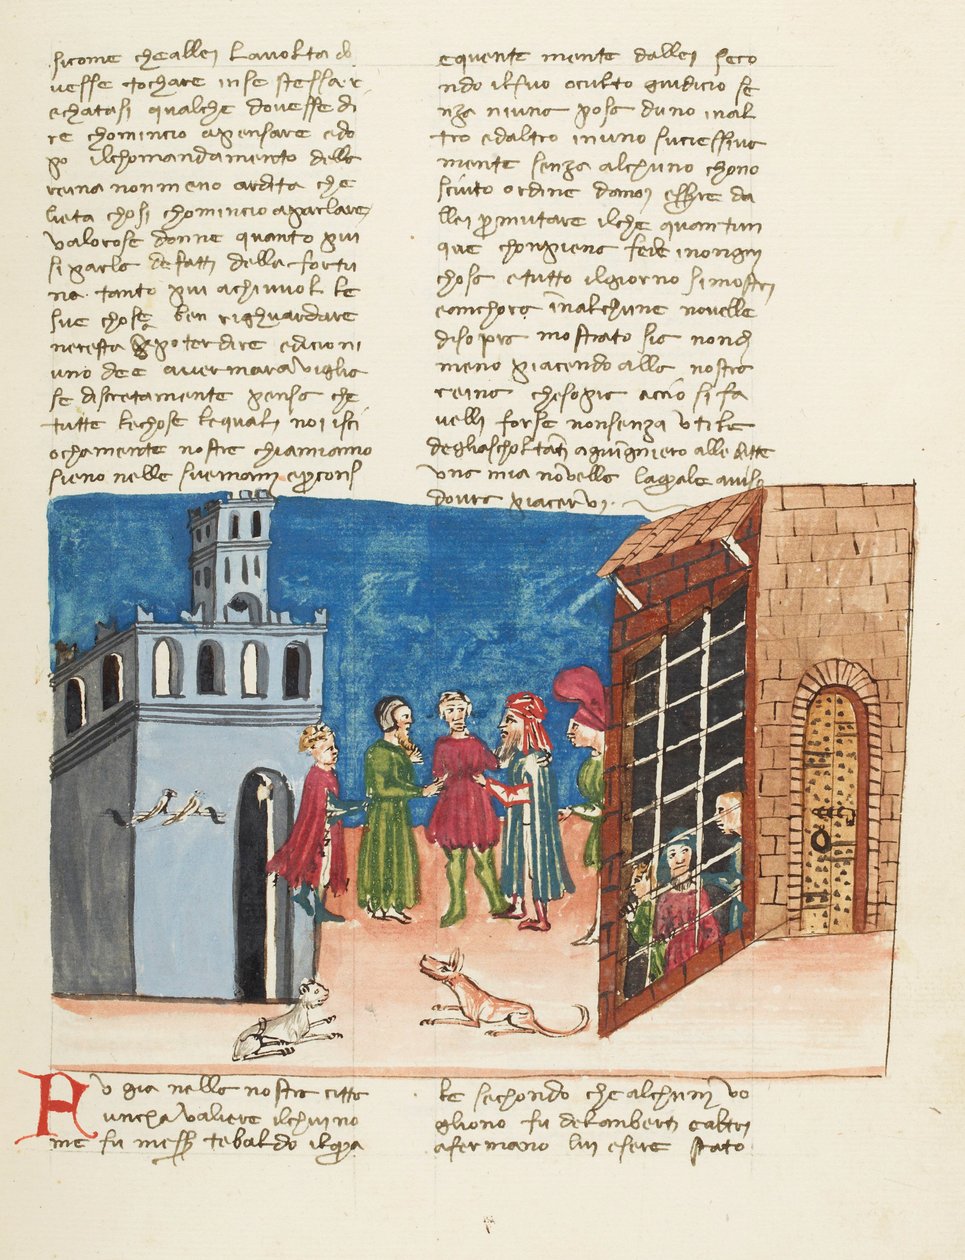 sicome cheallei lavolta do
vesse tochare inse stessa r
echatasi qualche dovesse di
re chomincio apensare edo
po ilchomandamento della
reina nonmeno ardita che
lieta chosi chomincio aparlare
valorose donne quanto piu
si parla defatti della fortu
na tanto piu achivuol le
sue chose ben righuardare
ne resta poterdire edicio ni
uno dee avermaraviglia
se discretamente pensa che
tutte lechose lequali noi isci
ochamente nostre chiamiamo
sieno nelle suemani epcons
equente mente dallei seco
ndo ilsuo oculto giudicio se
nza niuna posa duno inal
tro edaltro inuno suciessiva
mente senza alchuno chono
sciuto ordine danoi essere da
llei pmutare ilche quantun
que chonpiena fede inongni
chosa etutto ilgiorno simostri
eanchora inalchune novelle
disopra mostrato sia nondi
meno piacendo alla nostra
reina chesopra accio si fa
velli forse nonsenza utile
degliascholtati agiugniero alle dette
una mia novella laquale aviso
dovra piacervi
Fu gia nella nostra citta
unchavaliere ilchui no
me fu mess tebaldo ilqua
le sechondo che alchuni vo
gliono fu delamberti ealtri
afermano lui esere stato